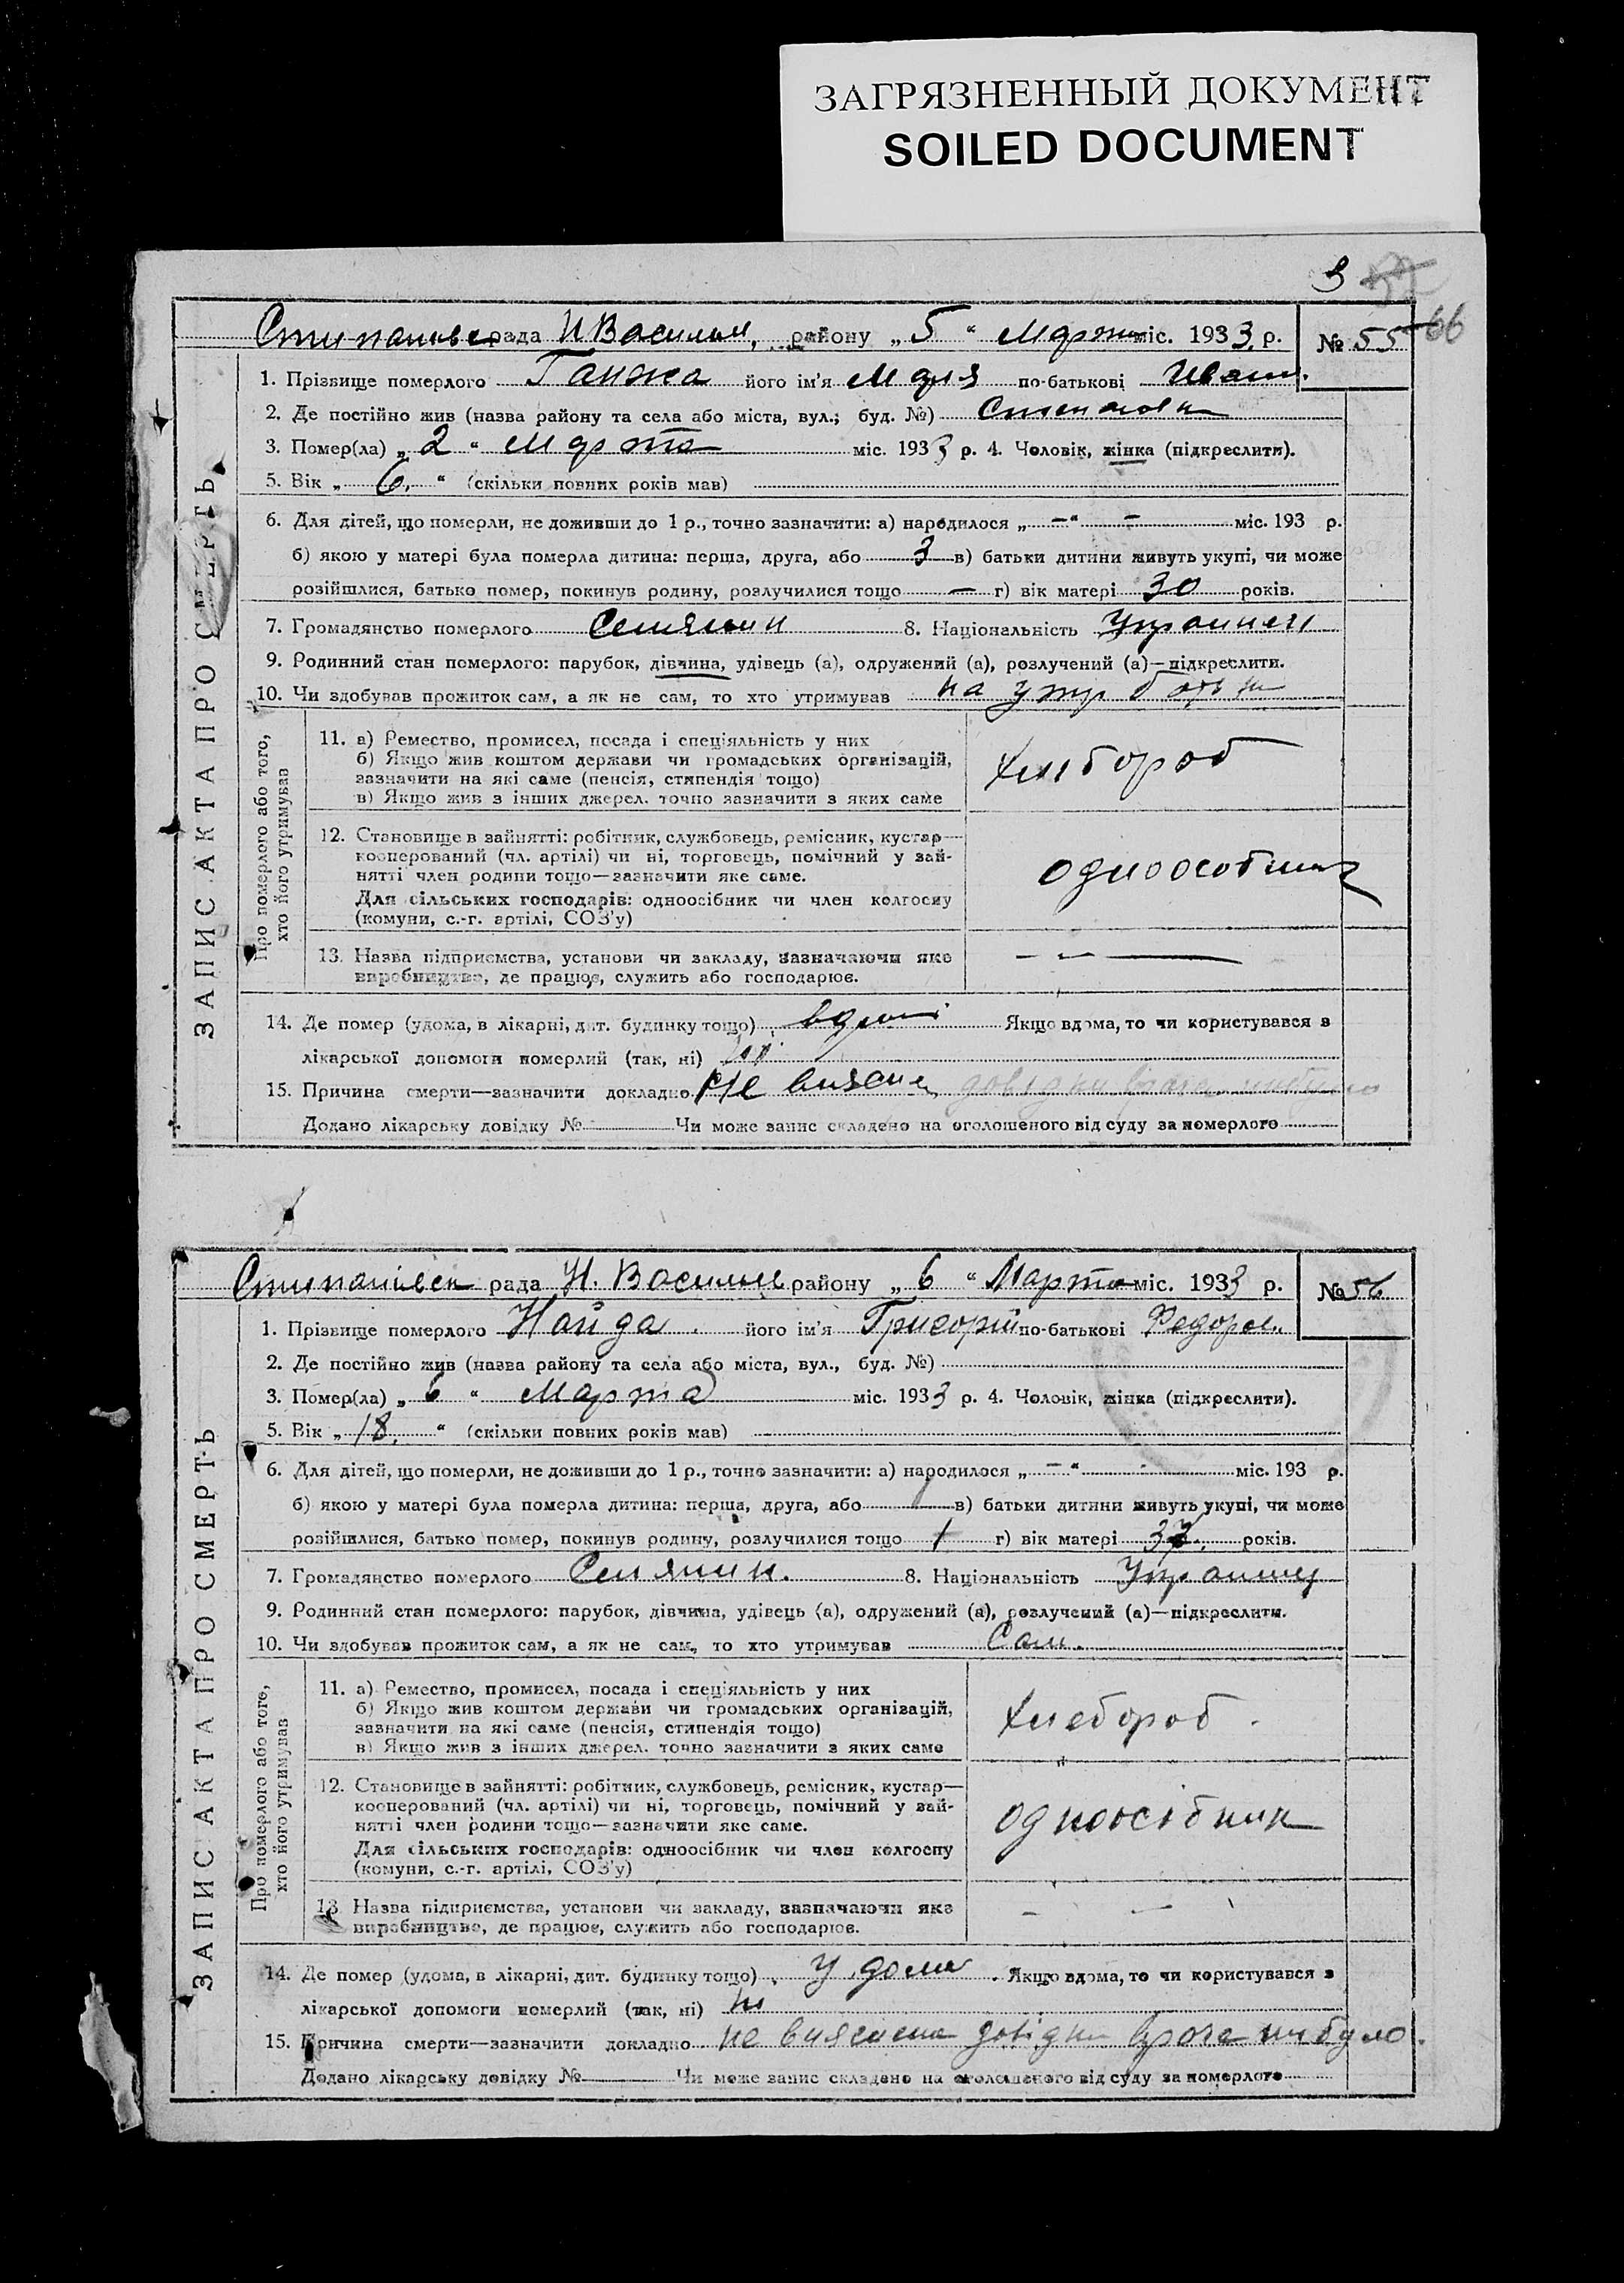 ЗАГРЯЗНЕННЫЙ ДОКУМЕНТ
SOILED DOCUMENT
66
рада Н Василья, району „ 5 “ Марта міс. 1933 р. № 55
1. Прізвище померлого Ганжа його ім'я Марія по-батькові Иван.
2. Де постійно жив (назва району та села або міста, вул.; буд. №) Степановка
3. Помер(ла) „ 2 “ Марта міс. 1933 р. 4. Чоловік, жінка (підкреслити).
5. Вік „ 6. “ (скільки повних років мав)
ЗАПИС АКТА ПРО СМЕРТЬ
6. Для дітей, що померли, не доживши до 1 р., точно зазначити: а) народилося „ — “ — міс. 193 р.
б) якою у матері була померла дитина: перша, друга, або 3 в) батьки дитини живуть укупі, чи може
розійшлися, батько помер, покинув родину, розлучилися тощо — г) вік матері 30 років.
7. Громадянство померлого Селянин 8. Національність Украинец
9. Родинний стан померлого: парубок, дівчина, удівець (а), одружений (а), розлучений (а)—підкреслити.
10. Чи здобував прожиток сам, а як не сам, то хто утримував на утр батьки
Про померлого або того,
хто його утримував
11. а) Ремество, промисел, посада і спеціяльність у них
б) Якщо жив коштом держави чи громадських організацій,
зазначити на які саме (пенсія, стипендія тощо)
в) Якщо жив з інших джерел. точно зазначити з яких саме
хлібороб
12. Становище в зайнятті: робітник, службовець, ремісник, кустар—
кооперований (чл. артілі) чи ні, торговець, помічний у зай-
нятті член родини тощо—зазначити яке саме.
Для сільських господарів: одноосібник чи член колгоспу
(комуни, с.-г. артілі, СОЗ'у)
одноособник
13. Назва підприємства, установи чи закладу, зазначаючи яке
виробництво, де працює, служить або господарює.
— — —
14. Де помер (удома, в лікарні, дит. будинку тощо) вдомі Якщо вдома, то чи користувався з
лікарської допомоги померлий (так, ні) ні
15. Причина смерти—зазначити докладно Не виясне, довідки врача небуло
Додано лікарську довідку № Чи може запис складено на оголошеного від суду за померлого
рада Н. Василье району „ 6 “ Марта міс. 1933 р. № 56
1. Прізвище померлого Найда його ім'я Григорій по-батькові Федоров.
2. Де постійно жив (назва району та села або міста, вул., буд. №)
3. Помер(ла) „ 6 “ Марта міс. 1933 р. 4. Чоловік, жінка (підкреслити).
5. Вік „ 18. “ (скільки повних років мав)
ЗАПИС АКТА ПРО СМЕРТЬ
6. Для дітей, що померли, не доживши до 1 р., точно зазначити: а) народилося „ — “ - міс. 193 р.
б) якою у матері була померла дитина: перша, друга, або в) батьки дитини живуть укупі, чи може
розійшлися, батько помер, покинув родину, розлучилися тощо г) вік матері років.
7. Громадянство померлого Селянин. 8. Національність Украинец
9. Родинний стан померлого: парубок, дівчина, удівець (а), одружений (а), розлучений (а)—підкреслити.
10. Чи здобував прожиток сам, а як не сам, то хто утримував Сам.
Про померлого або того,
хто його утримував
11. а) Ремество, промисел, посада і спеціяльність у них
б) Якщо жив коштом держави чи громадських організацій,
зазначити на які саме (пенсія, стипендія тощо)
в) Якщо жив з інших джерел. точно зазначити з яких саме
хлебороб.
12. Становище в зайнятті: робітник, службовець, ремісник, кустар—
кооперований (чл. артілі) чи ні, торговець, помічний у зай-
нятті член родини тощо—зазначити яке саме.
Для сільських господарів: одноосібник чи член колгоспу
(комуни, с.-г. артілі, СОЗ'у)
одноосібник
13. Назва підприємства, установи чи закладу, зазначаючи яке
виробництво, де працює, служить або господарює.
— —
14. Де помер (удома, в лікарні, дит. будинку тощо) У доме. Якщо вдома, то чи користувався з
лікарської допомоги померлий (так, ні) ні
15. Причина смерти—зазначити докладно не вияснена довідки врача небуло.
Додано лікарську довідку № Чи може запис складено на оголошеного від суду за померлого